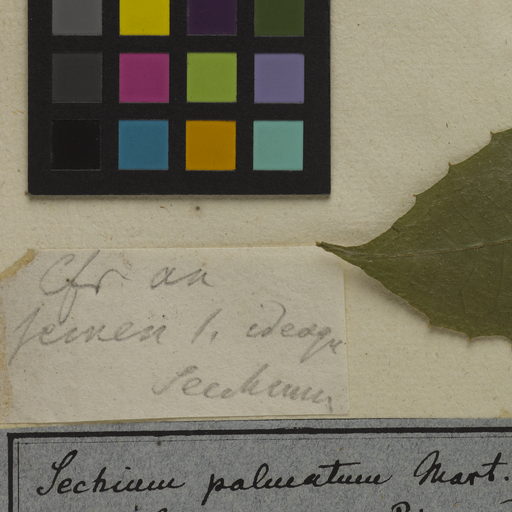 Cfr an
semen 1. ideoqu
Sechium
Sechium palmatum Mart.